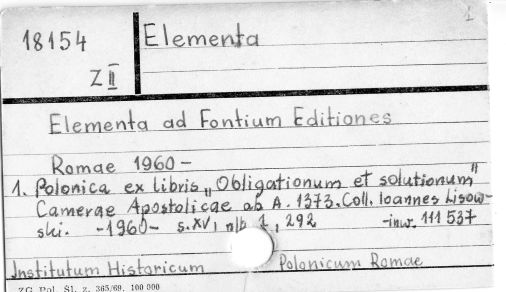 1
18154
Elementa
Z II
Elementa ad Fontium Editiones
Romae 1960 -
1. Polonica ex libris „Obligationum et solutionum"
Camerae Apostolicae ab A. 1373. Coll. Ioannes Lisow-
ski. - 1960 - s. XV, nlb 1, 292 - inw. 111 537
Institutum Historicum Polonicum Romae
ZG Pol. Śl. z. 365/69. 100 000